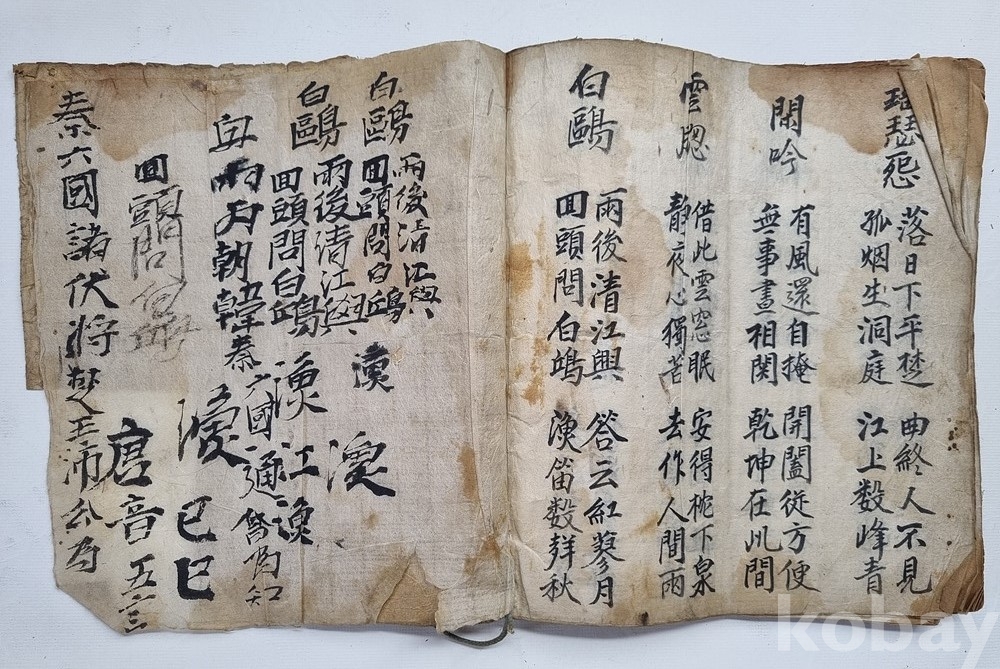 瑟怨
落日下平楚 曲終人不見
孤烟生洞庭 江上数峰青
閑吟
有風還自掩 開闔従方便
無事晝相関 乾坤在此間
雲牕
借此雲窓眠 安得枕下泉
靜夜心獨苦 去作人間雨
白鷗
雨後清江興 答云紅蓼月
囬頭問白鴎 漁笛数聲秋
白鷗
雨後清江興
囬頭問白鷗 漁
白鷗
雨後清江興 漁
囬頭問白鷗 漁江漁
朝韓秦六國通
囬頭問白
巳巳
唐音五言
秦六國諸伏將楚王沛公為